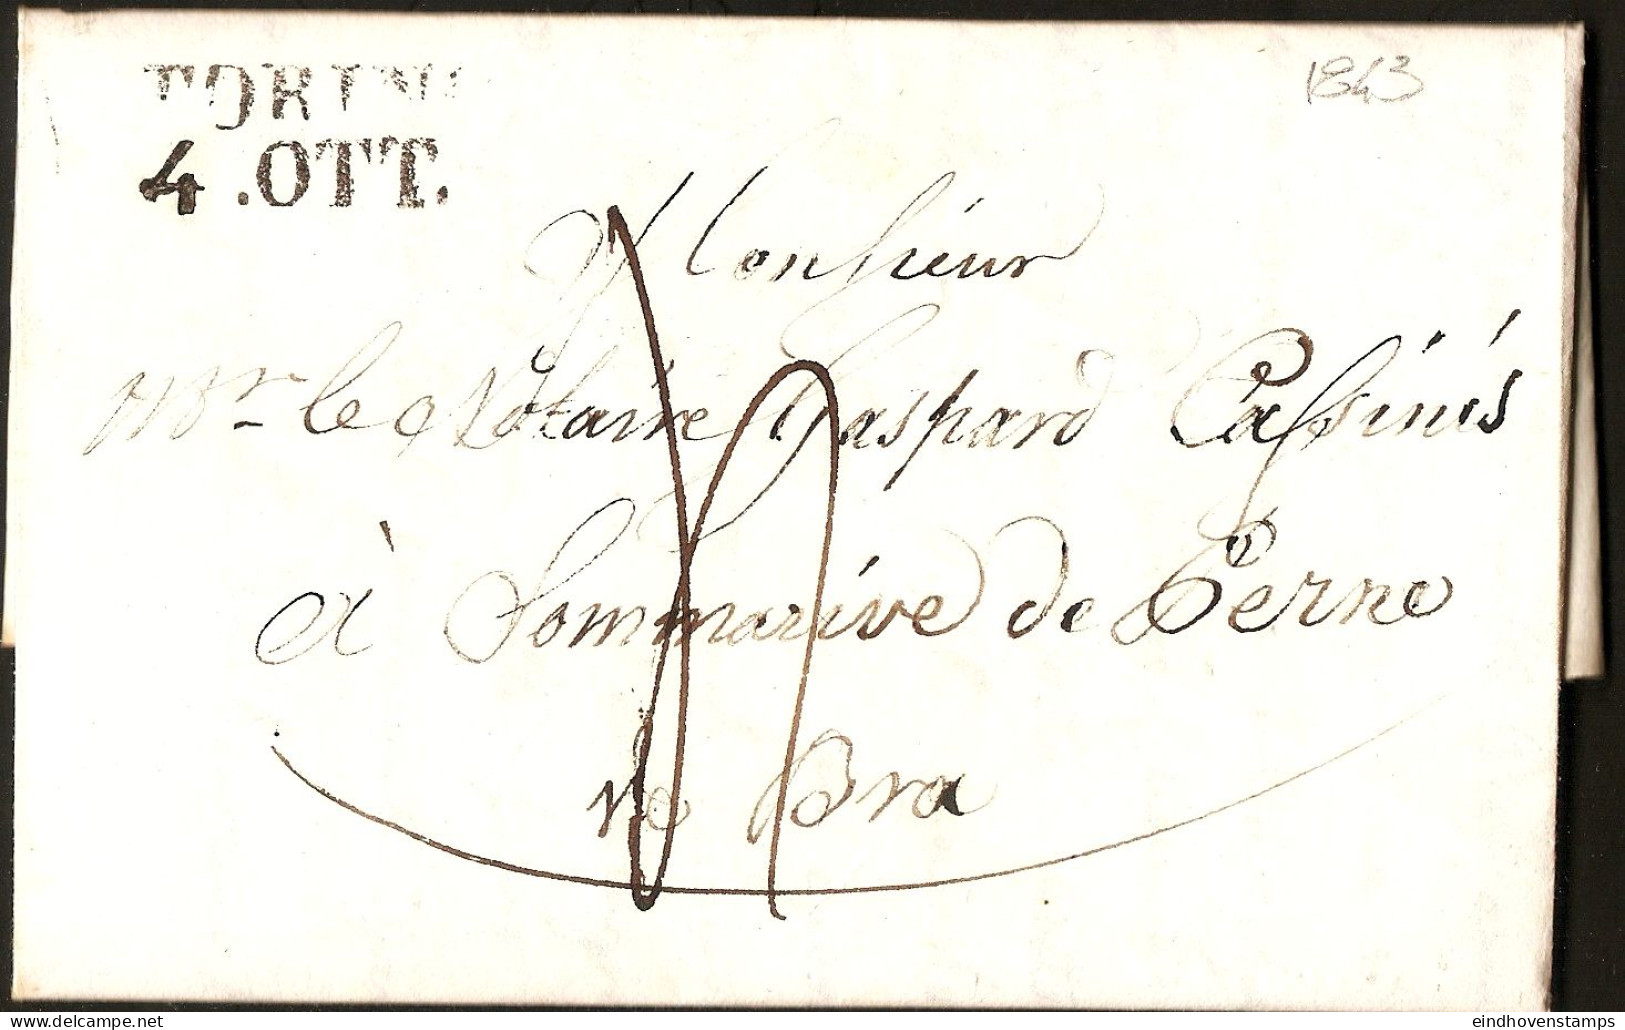 TORINO
4 .OTT.
1843
Monsieur
Mr. le Notaire Gaspard Cassinis
à Sommarive de Perno
Bra
eindhovenstamps